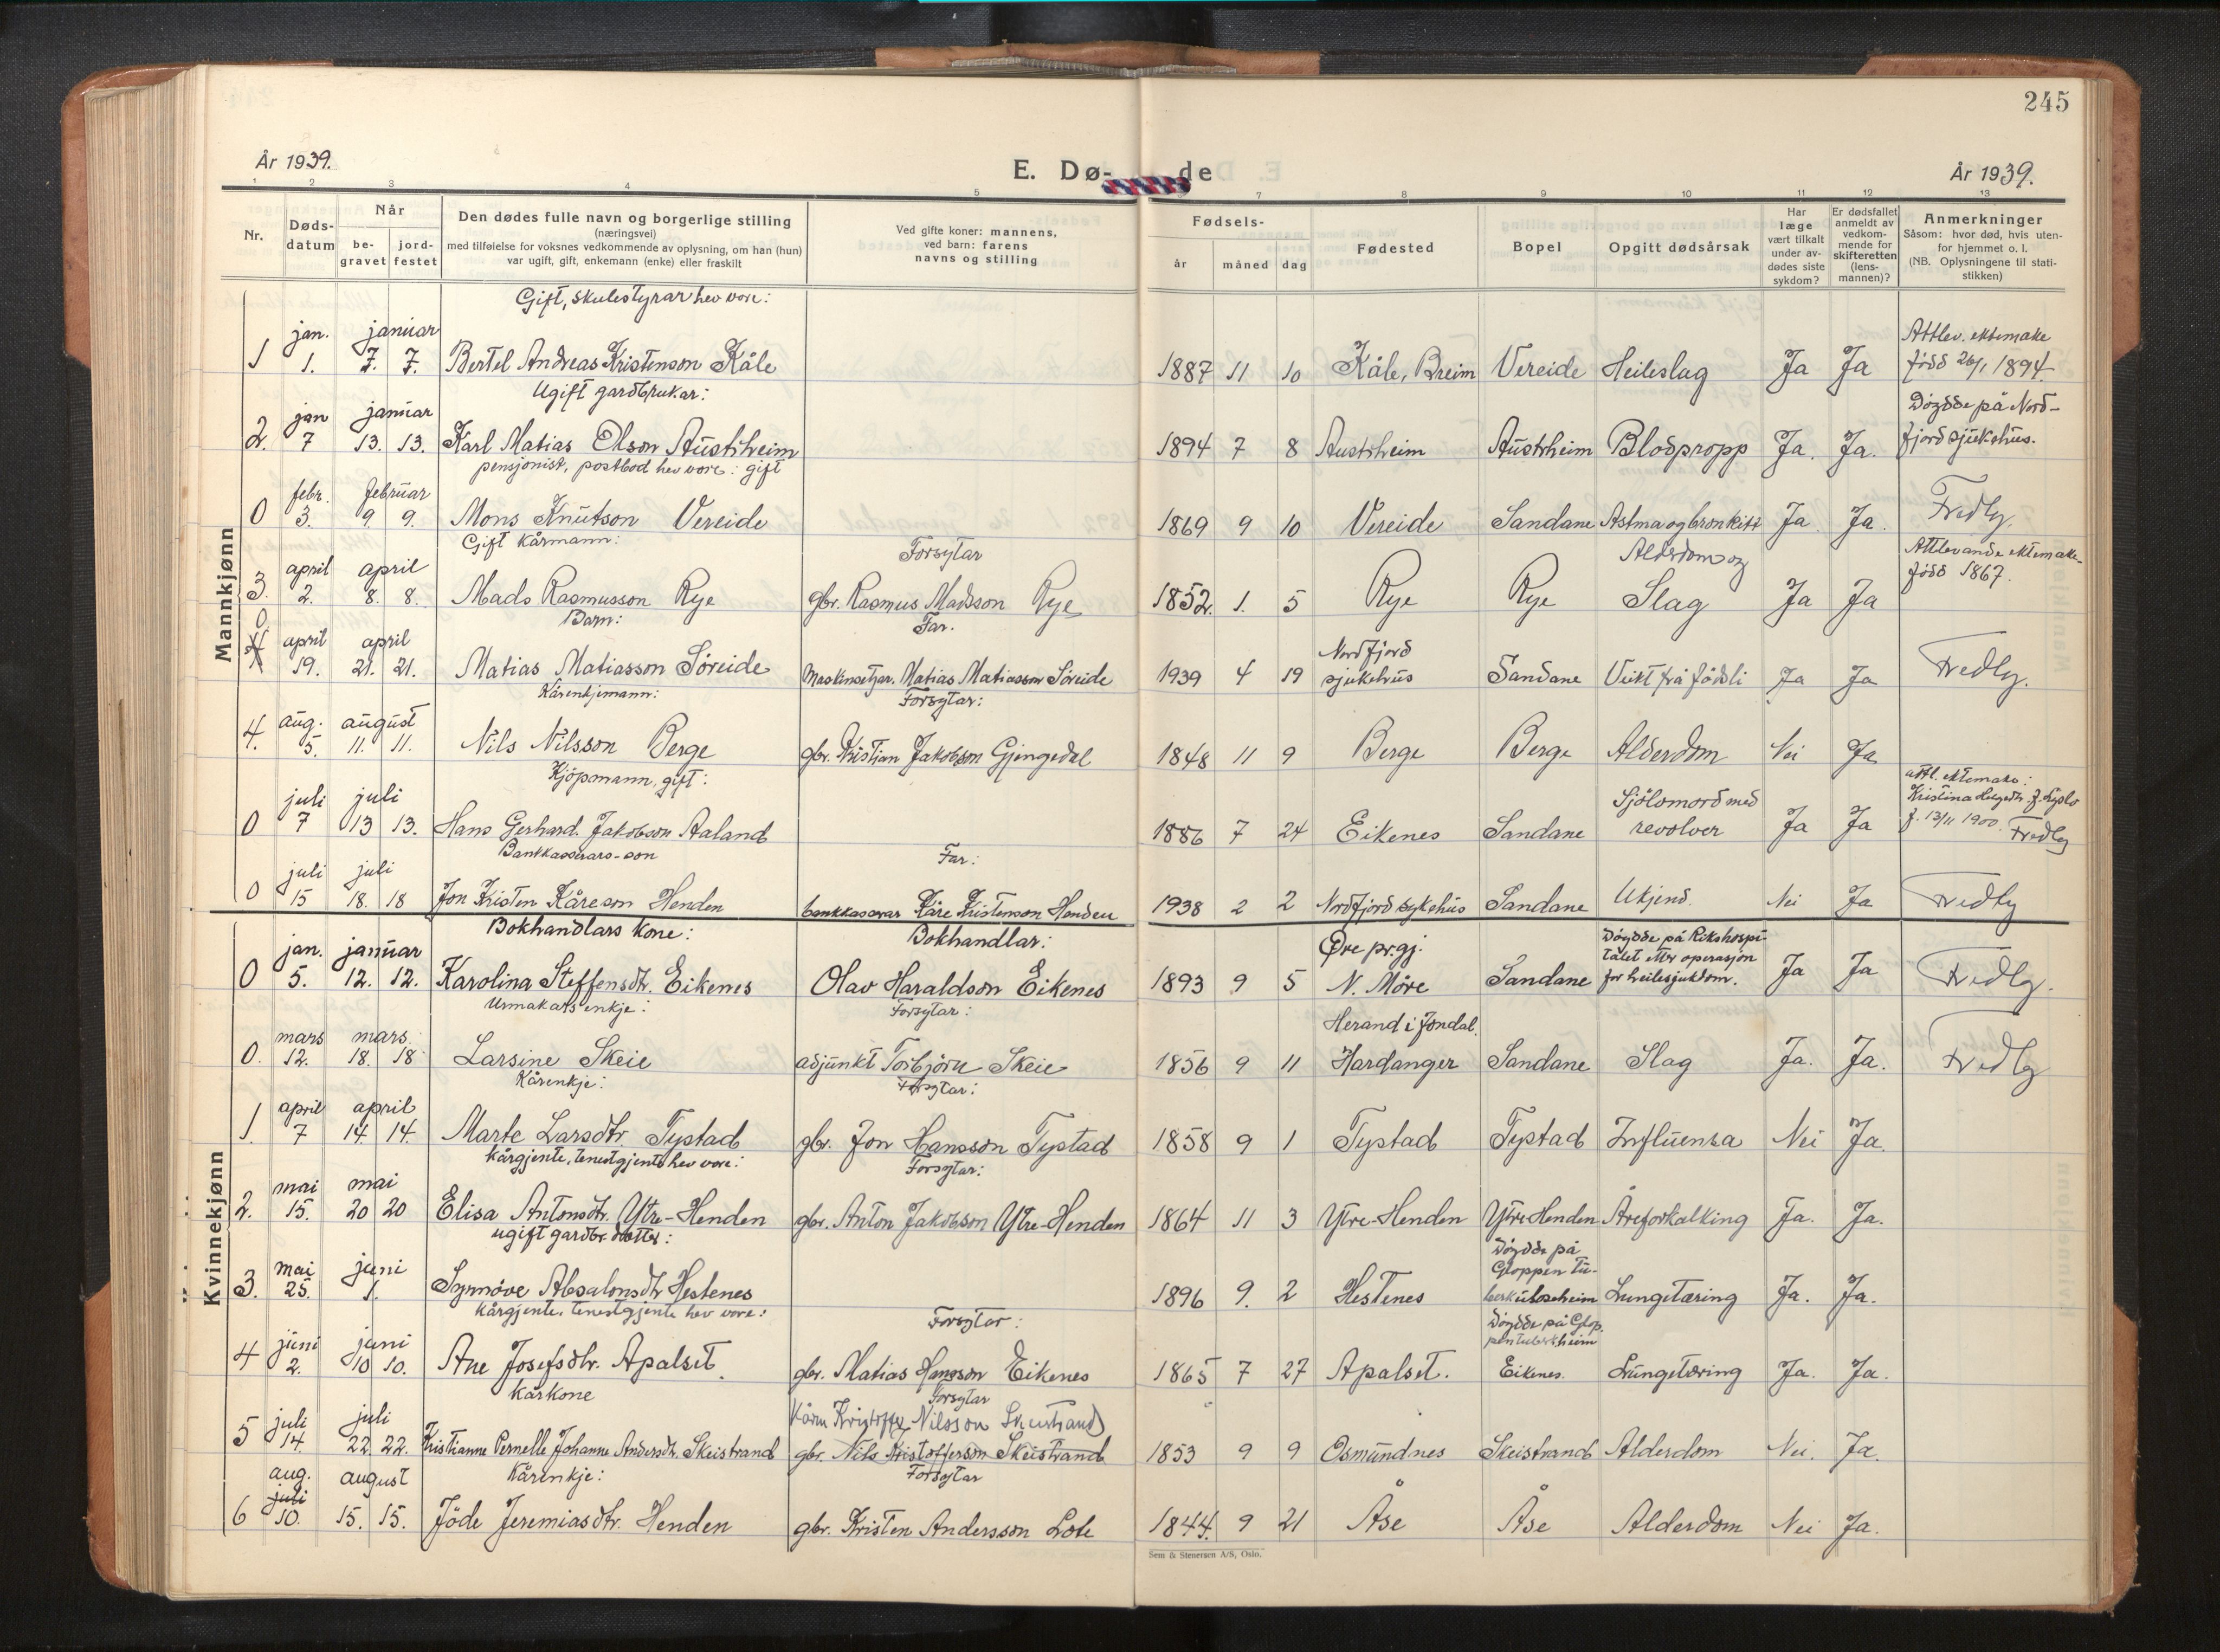 245
År 1939.
E. Dø- de
År 1939.
1 2 3 4 5 7 8 9 10 11 12 13
Nr.
Døds-
datum
Når
be-
gravet
jord-
festet
Den dødes fulle navn og borgerlige stilling
(næringsvei)
med tilføielse for voksnes vedkommende av oplysning, om han (hun)
var ugift, gift, enkemann (enke) eller fraskilt
Ved gifte koner: mannens,
ved barn: farens
navns og stilling
Fødsels-
år måned dag
Fødested
Bopel
Opgitt dødsårsak
Har
læge
vært tilkalt
under av-
dødes siste
sykdom?
Er dødsfallet
anmeldt av
vedkom-
mende for
skifteretten
(lens-
mannen)?
Anmerkninger
Såsom: hvor død, hvis uten-
for hjemmet o. l.
(NB. Oplysningene til stati-
stikken)
Mannkjønn
Gift, skulestyrar hev vore:
jan. januar
1 1. 7. 7. Bertel Andreas Kristenson Kåle 1887 11 10 Kåle, Breim Vereide Heileslag Ja Ja
Attlev. ektemake
född 26/1 1894.
Ugift gardbrukar:
jan januar
2. 7 13. 13. Karl Matias Olson Austrheim 1894 7 8 Austrheim Austrheim Blodpropp Ja. Ja.
Döydde på Nord-
fjord sjukehus.
pensjonist, postbod hev vore: gift
febr. februar
0 3. 9. 9. Mons Knutson Vereide 1869 9 10 Vereide Sandane Astma og bronkitt Ja Ja. Fredly.
Gift kårmann:
Forsytar
april april
3. 2. 8. 8. Mads Rasmusson Rye gbr. Rasmus Madsson Rye 1852. 1. 5 Rye Rye
Alderdom og
Slag Ja Ja
Attlevande ektemake
född 1867.
Barn:
Far.
0
april april
4 19. 21. 21. Matias Matiasson Söreide Maskinsetjar. Matias Matiasson Söreide 1939 4 19
Nordfjord
sjukehus Sandane Veikt frå födsli Ja Ja Fredly.
Kårenkjemann:
Forsytar:
aug. august
4. 5. 11. 11. Nils Nilsson Berge gbr. Kristian Jakobson Gjengedal 1848 11 9 Berge Berge Alderdom Nei Ja
Kjöpmann, gift:
juli juli
0 7 13 13. Hans Gerhard Jakobson Aaland 1886 7 24 Eikenes Sandane
Sjölomord med
revolver Ja Ja
attl. ektemake:
Kristina Helgedtr. f.
f. 13/11 1900. Fredly
Bankkasserars-son
Far:
juli juli
0 15 18. 18 Jon Kristen Kåreson Henden bankkasserar Kåre Kristenson Henden 1938 2 2 Nordfjord sykehus Sandane Ukjend. Nei Ja Fredly
Kvinnekjønn
Bokhandlars kone:
Bokhandlar:
jan. januar
0 5. 12. 12. Karolina Steffensdtr. Eikenes Olav Haraldson Eikenes 1893 9 5
Øre pr.gj.
N. Möre Sandane
Döydde på Rikshospi-
talet etter operasjon
for heilesjukdom. Ja Ja Fredly.
Urmakars enkje:
Forsytar:
mars mars
0. 12. 18. 18 Larsine Skeie adjunkt Torbjörn Skeie 1856 9 11
Herand i Jondal.
Hardanger Sandane Slag Ja. Ja. Fredly
Kårenkje:
Forsytar:
april april
1. 7 14. 14. Marte Larsdtr. Tystad gbr. Jon Hansson Tystad 1858 9 1 Tystad Tystad Influensa Nei Ja.
Kårgjente, tenestgjente hev vore:
Forsytar:
mai mai
2. 15. 20 20 Elisa Antonsdtr. Ytre-Henden gbr. Anton Jakobson Ytre-Henden 1864 11 3 Ytre-Henden Ytre Henden Åreforkalking Ja. Ja.
ugift gardbr. dotter:
mai juni
3. 25. 1. Synnöve Absalonsdtr Hestenes 1896 9. 2 Hestenes
Döydde på
Gloppen tu-
berkuloseheim Lungetæring Ja. Ja.
Kårgjente, tenestgjente hev vore:
Forsytar:
juni juni
4 2. 10 10. Ane Josefsdtr. Apalset. gbr. Matias Hansson Eikenes 1865 7 27 Apalset.
Döydde på Glop-
pen tuberk.heim
Eikenes. Lungetæring Ja. Ja.
Kårkone
Forsytar
Kårm Kristoffer Nilsson Skeistrand
juli juli
5 14. 22. 22. Kristianne Pernelle Johanne Andersdtr. Skeistrand gbr. Nils Kristofferson Skeistrand 1853 9 9 Osmundnes Skeistrand Alderdom Nei. Ja.
Kårenkje:
Forsytar
aug. august
juli
6 10. 15. 15. Jöde Jeremiasdtr. Henden gbr. Kristen Andersson Lote 1844. 9 21 Åse Åse Alderdom Nei Ja.
Sem & Stenersen A/S, Oslo.